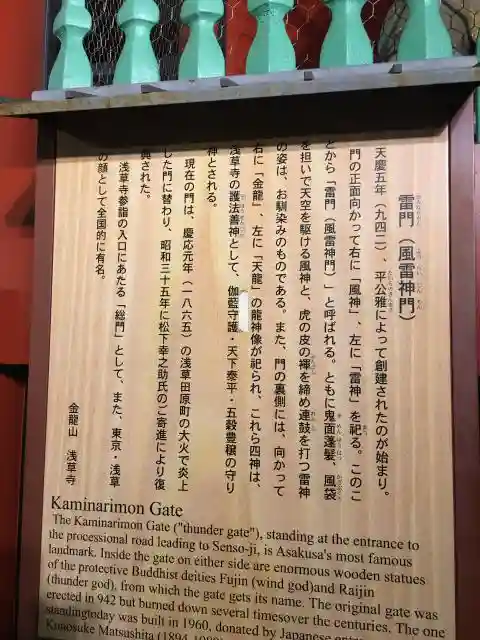 雷門（風雷神門）
天慶五年（九四二）、平公雅によって創建されたのが始まり。
門の正面向かって右に「風神」、左に「雷神」を祀る。このこ
とから「雷門（風雷神門）」と呼ばれる。ともに鬼面蓬髪、風袋
を担いで天空を駆ける風神と、虎の皮の褌を締め連鼓を打つ雷神
の姿は、お馴染みのものである。また、門の裏側には、向かって
右に「金龍」、左に「天龍」の龍神像が祀られ、これら四神は、
浅草寺の護法善神として、伽藍守護・天下泰平・五穀豊穣の守り
神とされる。
現在の門は、慶応元年（一八六五）の浅草田原町の大火で炎上
した門に替わり、昭和三十五年に松下幸之助氏のご寄進により復
興された。
浅草寺参詣の入口にあたる「総門」として、また、東京・浅草
の顔として全国的に有名。
金龍山　浅草寺
Kaminarimon Gate
The Kaminarimon Gate ("thunder gate"), standing at the entrance to
the processional road leading to Senso-ji, is Asakusa's most famous
landmark. Inside the gate on either side are enormous wooden statues
of the protective Buddhist deities Fujin (wind god)and Raijin
(thunder god), from which the gate gets its name. The original gate was
erected in 942 but burned down several timesover the centuries. The one
standingtoday was built in 1960, donated by Japanese
Konosuke Matsushita (1894-1989)